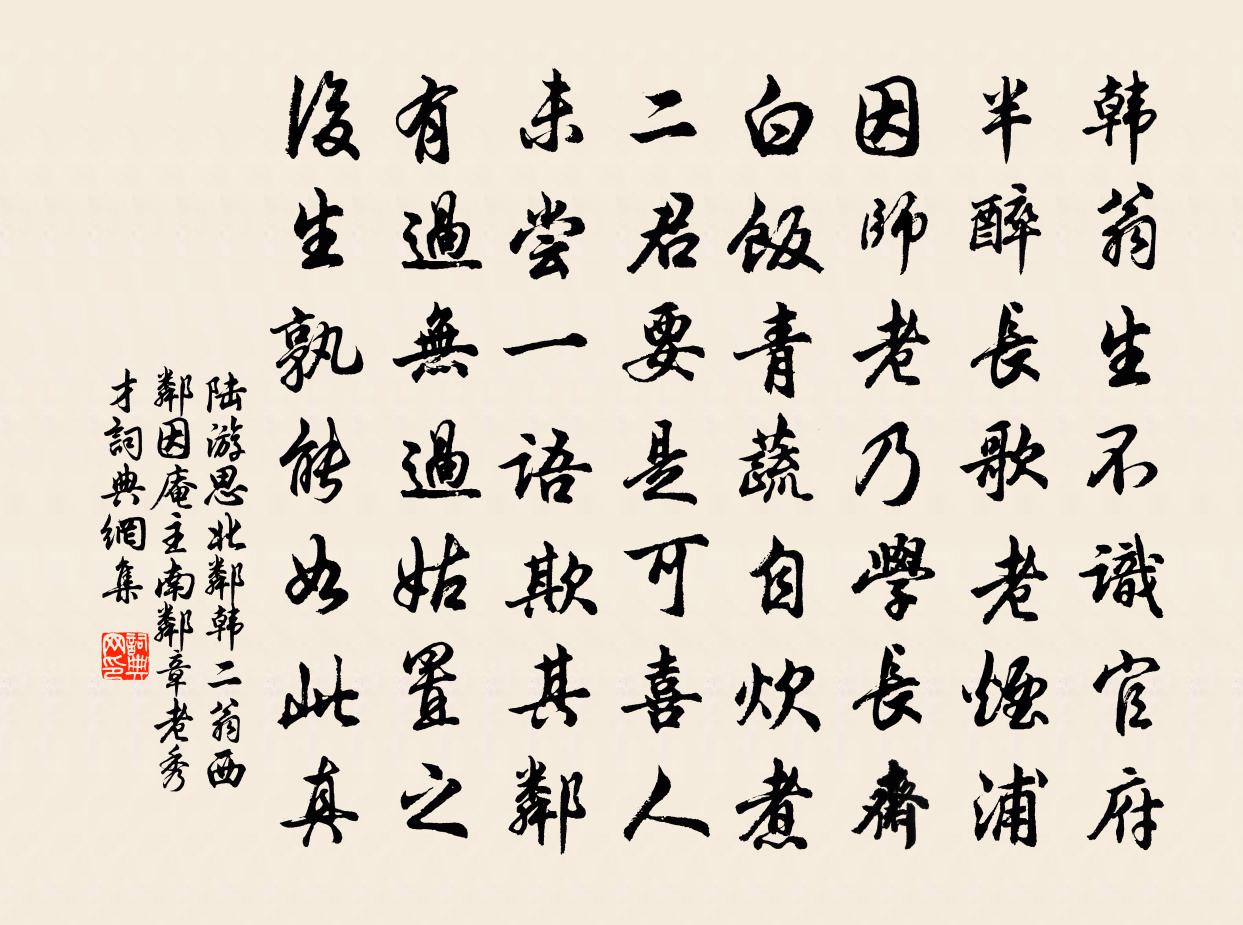 韓翁生不識官府
半醉長歌老煙浦
因師老乃學長齋
白飯青蔬自炊煮
二君要是可喜人
未嘗一語欺其鄰
有過無過姑置之
後生孰能如此真
陸游思北鄰韓二翁西
鄰因庵主南鄰章老秀
才詞典網集
詞典網印